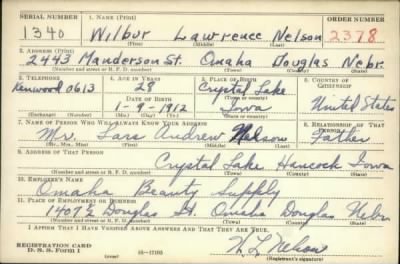 SERIAL NUMBER 1. NAME (Print) ORDER NUMBER
1340 Wilbur Lawrence Nelson 2378
(First) (Middle) (Last)
2. ADDRESS (Print)
2443 Manderson St. Omaha Douglas Nebr.
(Number and street or R. F. D. number) (Town) (County) (State)
3. TELEPHONE 4. AGE IN YEARS 5. PLACE OF BIRTH 6. COUNTRY OF CITIZENSHIP
Kenwood 0613 28 Crystal Lake
DATE OF BIRTH (Town or county)
1-9-1912 Iowa United States
(Exchange) (Number) (Mo.) (Day) (Yr.) (State or country)
7. NAME OF PERSON WHO WILL ALWAYS KNOW YOUR ADDRESS 8. RELATIONSHIP OF THAT PERSON
Mr. Lars Andrew Nelson Father
(Mr., Mrs., Miss) (First) (Middle) (Last)
9. ADDRESS OF THAT PERSON
Crystal Lake Hancock Iowa
(Number and street or R. F. D. number) (Town) (County) (State)
10. EMPLOYER'S NAME
Omaha Beauty Supply
11. PLACE OF EMPLOYMENT OR BUSINESS
1407½ Douglas St. Omaha Douglas Nebr
(Number and street or R. F. D. number) (Town) (County) (State)
I AFFIRM THAT I HAVE VERIFIED ABOVE ANSWERS AND THAT THEY ARE TRUE.
REGISTRATION CARD
D. S. S. Form 1 16-17105 W. L. Nelson
(Registrant's signature)